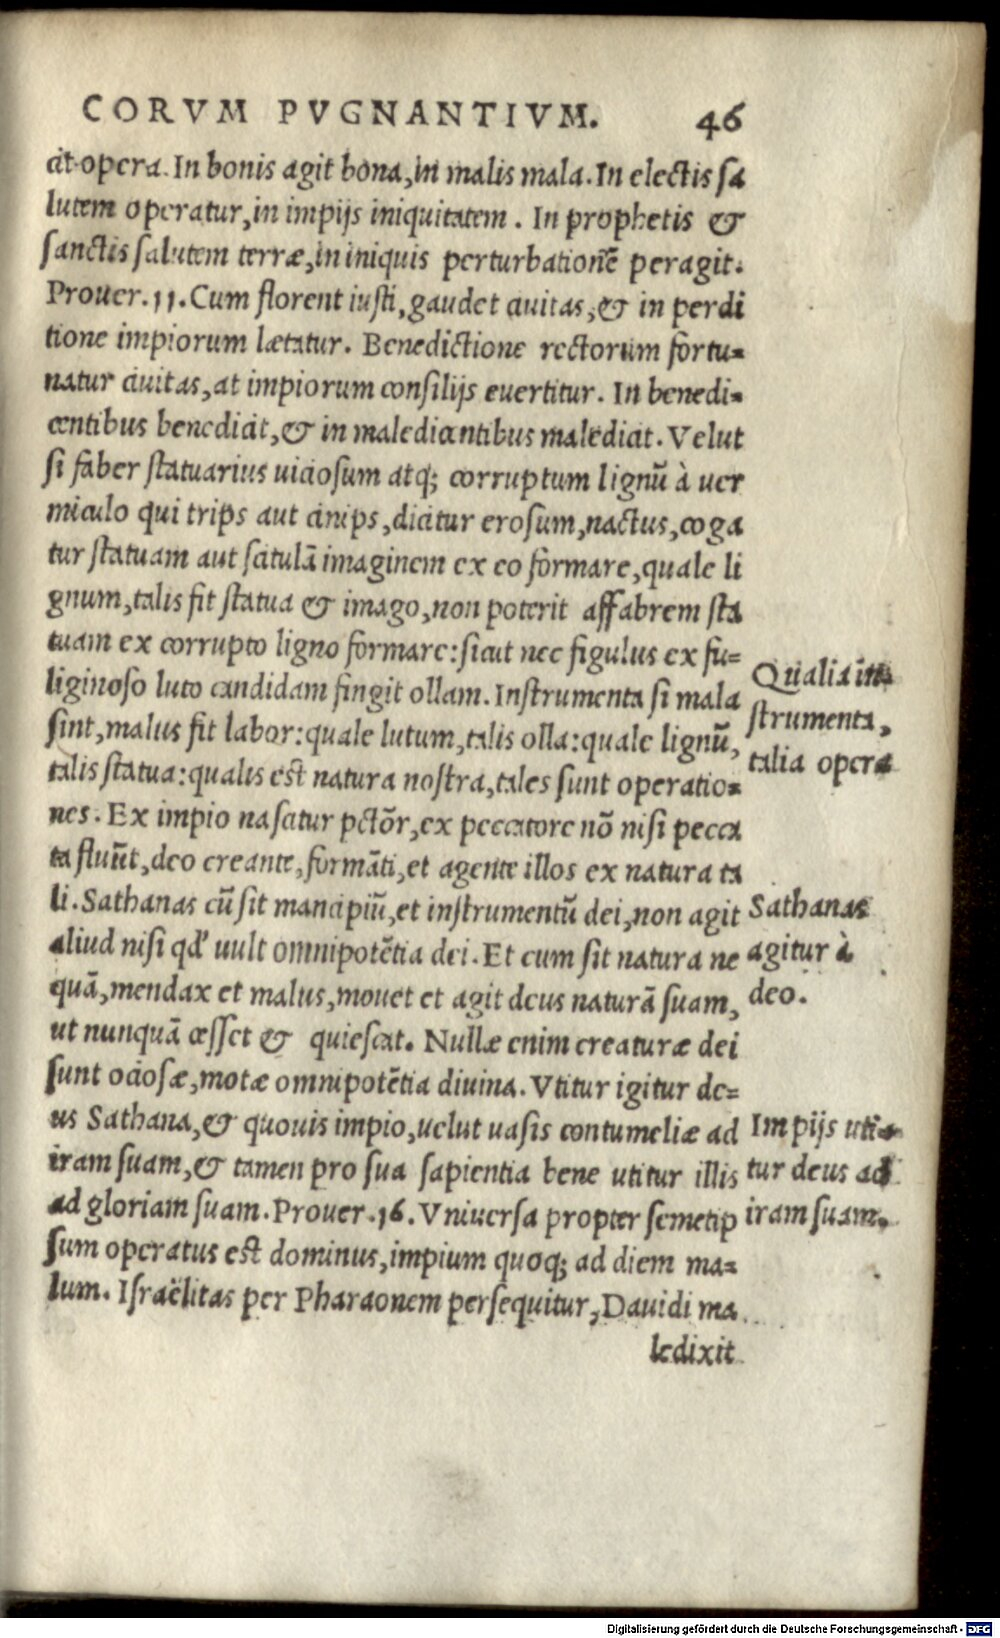 CORVM PVGNANTIVM. 46
cit opera. In bonis agit bona, in malis mala. In electis sa
lutem operatur, in impijs iniquitatem. In prophetis &
sanctis salutem terræ, in iniquis perturbationē peragit.
Prouer. 11. Cum florent iusti, gaudet ciuitas, & in perdi
tione impiorum lætatur. Benedictione rectorum fortu=
natur ciuitas, at impiorum consilijs euertitur. In benedi=
centibus benedicit, & in maledicentibus maledicit. Velut
si faber statuarius uiciosum atq; corruptum lignū à uer
miculo qui trips aut cinips, dicitur erosum, nactus, coga
tur statuam aut scitulā imaginem ex eo formare, quale li
gnum, talis fit statua & imago, non poterit affabrem sta
tuam ex corrupto ligno formare: sicut nec figulus ex fu=
liginoso luto candidam fingit ollam. Instrumenta si mala
sint, malus fit labor: quale lutum, talis olla: quale lignū,
talis statua: qualis est natura nostra, tales sunt operatio=
nes. Ex impio nascitur pctōr, ex peccatore nō nisi pecca
ta fluūt, deo creante, formāti, et agente illos ex natura ta
li. Sathanas cū sit mancipiū, et instrumentū dei, non agit
aliud nisi qd' uult omnipotētia dei. Et cum sit natura ne
quā, mendax et malus, mouet et agit deus naturā suam,
ut nunquā cesset & quiescat. Nullæ enim creaturæ dei
sunt ociosæ, motæ omnipotētia diuina. Vtitur igitur de=
us Sathana, & quouis impio, uelut uasis contumeliæ ad
iram suam, & tamen pro sua sapientia bene utitur illis
ad gloriam suam. Prouer. 16. Vniuersa propter semetip
sum operatus est dominus, impium quoq; ad diem ma=
lum. Israëlitas per Pharaonem persequitur, Dauidi ma
ledixit
Qualia in
strumenta,
talia opera
Sathanas
agitur à
deo.
Impijs uti=
tur deus ad
iram suam.
Digitalisierung gefördert durch die Deutsche Forschungsgemeinschaft - DFG